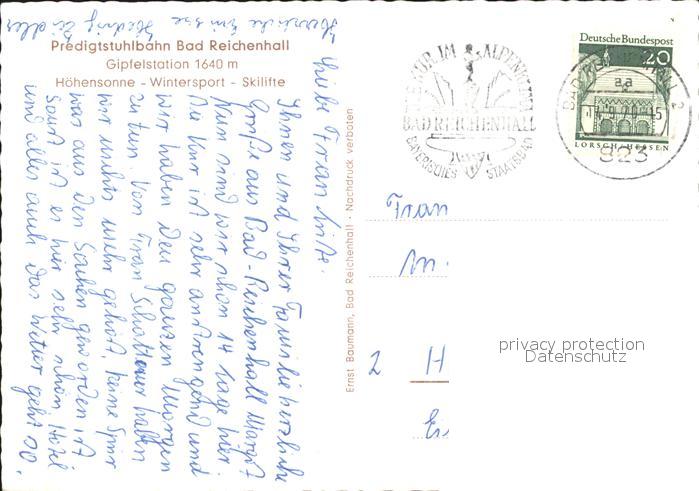 Herzliche Grüsse Hedwig
Predigtstuhlbahn Bad Reichenhall
Gipfelstation 1640 m
Höhensonne - Wintersport - Skilifte
Liebe Frau
Ihnen und Ihrer Familie herzliche
Grüße aus Bad-Reichenhall
Nun sind wir schon 14 Tage hier
die Kur ist sehr anstrengend und
wir haben den ganzen Morgen
zu tun. Von Frau haben
wir nichts mehr gehört, keine Spur
was aus den Sachen geworden ist
Sonst ist es hier sehr schön Hotel
und alles auch das Wetter geht so.
Ernst Baumann, Bad Reichenhall - Nachdruck verboten
KUR IM ALPENKLIMA
BAD REICHENHALL
BAYERISCHES STAATSBAD
Deutsche Bundespost
20
LORSCH/HESSEN
BAD REICHENHALL 2
aa
823
Frau
M.
2 H
privacy protection
Datenschutz